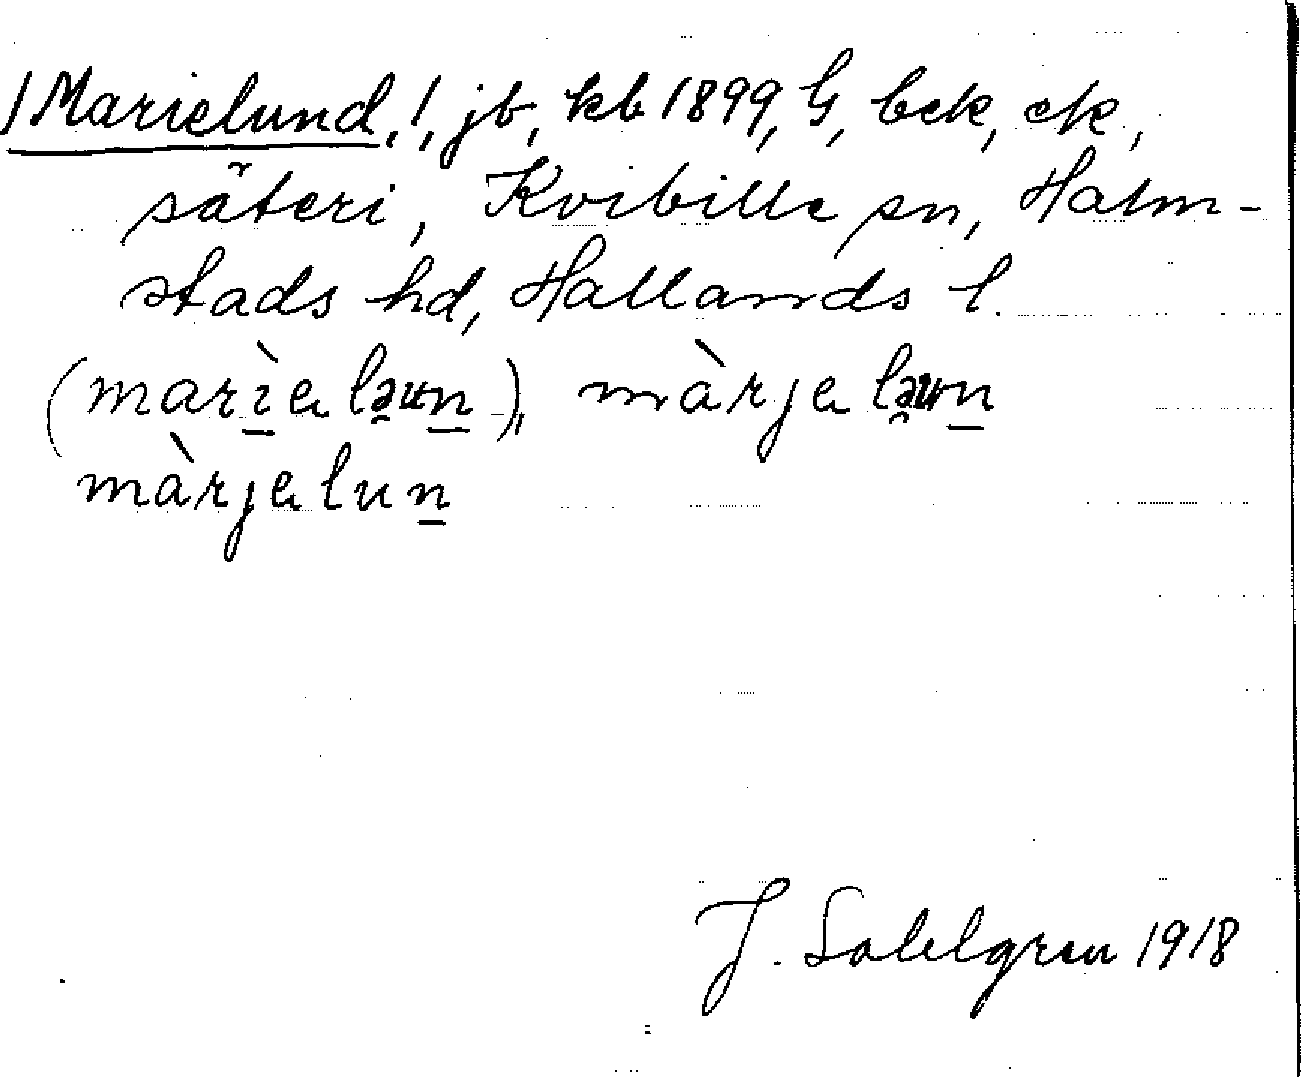 /Marielund,!, jb, kb 1899, G, bek, ek,
säteri, Kvibille sn, Halm-
stads hd, Hallands l.
(marìealəun), màrjealəun
màrjealun
J. Sahlgren 1918